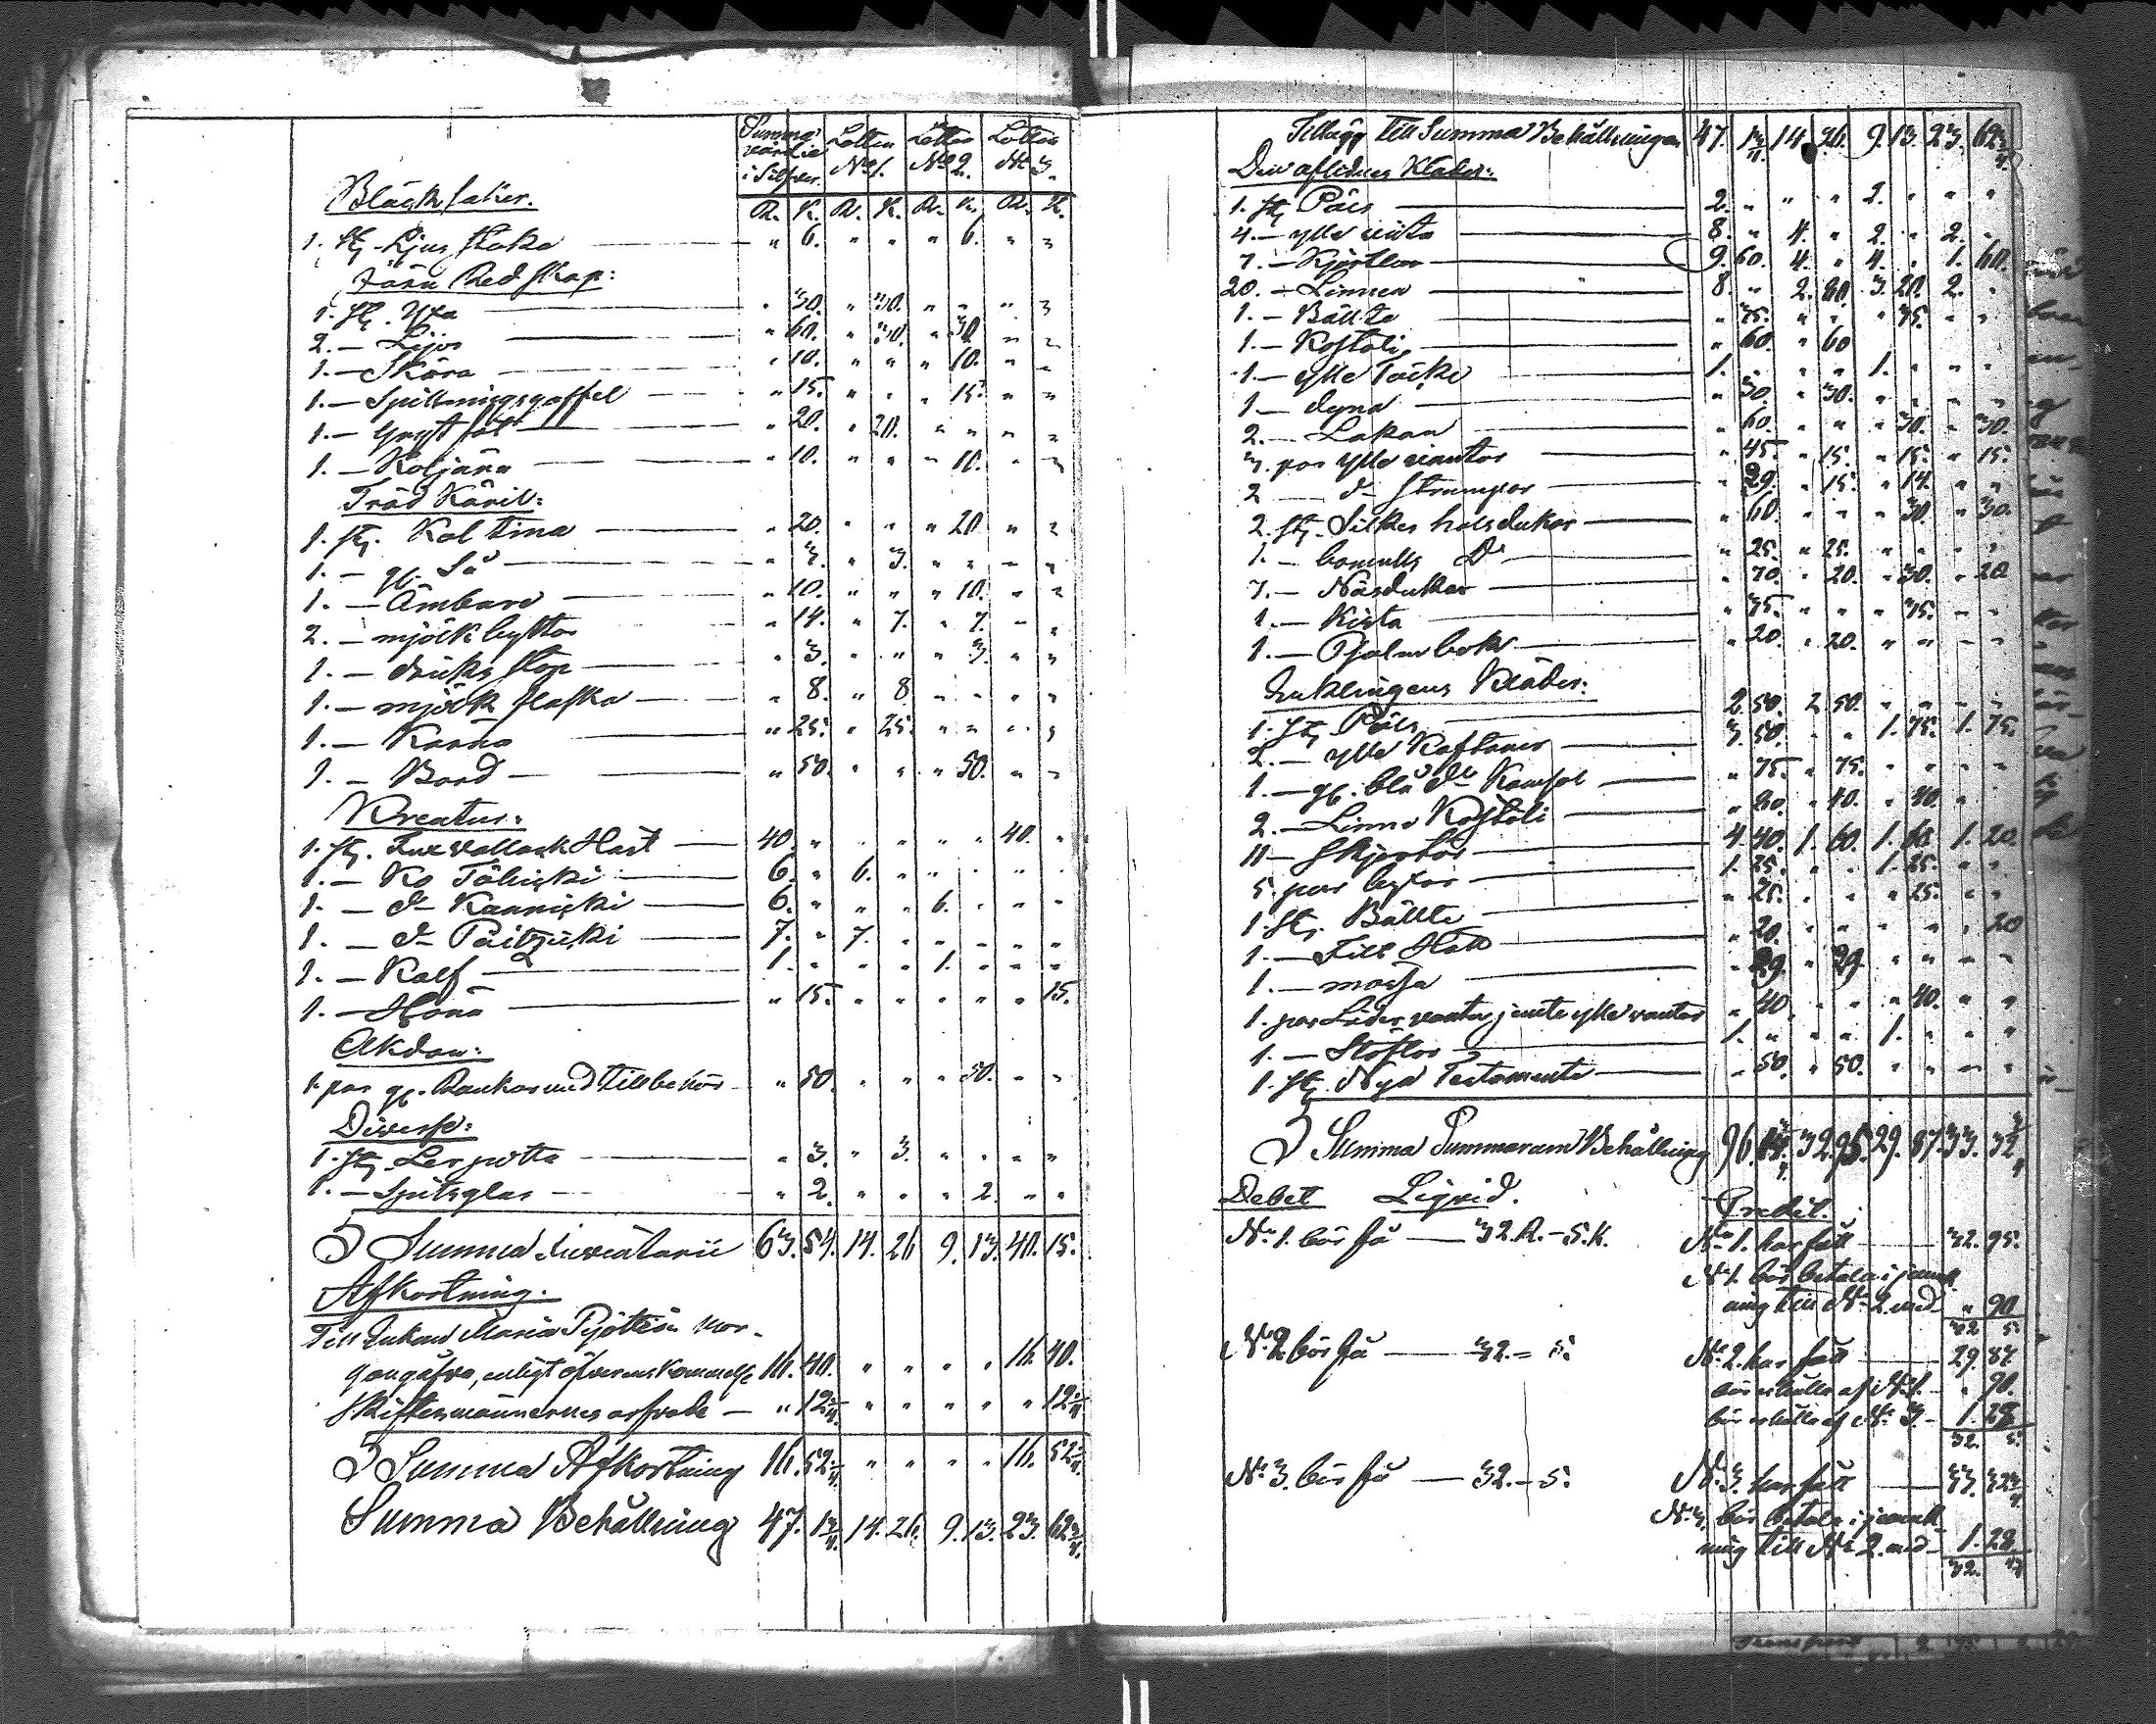 Summa värdie i Silfver. Lotten No 1. Lotten No 2. Lotten No 3.
R. K. R. K. R. K. R. K.
Bläck saker.
1. st. Ljus staka " 6. " " " 6. " "
Järn Redskap:
1. st. Yxa " 30. " 30. " " " "
2. — Lijor " 60. " 30. " 30. " "
1. — Skära " 10. " " " 10. " "
1. — Spillningsgaffel " 15. " " " 15. " "
1. — fot " 20. " 20. " " " "
1. — " 10. " " " 10. " "
Träd Käril:
1. st. Kol tina " 20. " " " 20. " "
1. — gl. Så " 3. " 3. " " " "
1. — Ämbare " 10. " " " 10. " "
2. — mjölk byttor " 14. " 7. " 7. " "
1. — dricks stop " 3. " " " 3. " "
1. — mjölk flaska " 8. " 8. " " " "
1. — Kärna " 25. " 25. " " " "
1. — Bord " 50. " " " 50. " "
Kreatur:
1. st. Vallack Häst 40. " " " " " 40. "
1. — Ko Tähicki 6. " 6. " " " " "
1. — d:o Kannicki 6. " " " 6. " " "
1. — d:o Päitzicki 7. " 7. " " " " "
1. — Kalf 1. " " " 1. " " "
1. — Höna " 15. " " " " " 15.
Åkdon:
1. par gl. Rankor med tillbehör " 50. " " " 50. " "
Diverse:
1. st. Lerpotta " 3. " 3. " " " "
1. — Spitsglas " 2. " " " 2. " "
Summa Inventarii 63. 54. 14. 26. 9. 13. 40. 15.
Afkortning.
Till Enkan Maria Pijötisin Mor-
gongåfva, enligt öfverenskommelse 16. 40. " " " " 16. 40.
Skiftesmännernes arfvode — " 12 1/4 " " " " " 12 1/4
Summa Afkortning 16. 52 1/4 " " " " 16. 52 1/4
Summa Behållning 47. 1 3/4 14. 26. 9. 13. 23. 62 3/4
Tillägg till Summa Behållningen 47. 1 3/4 14. 26. 9. 13. 23. 62 3/4
Den aflidnes Kläder:
1. st. Päls 2. " " " 2. " " "
4. — ylle 8. " 4. " 2. " 2. "
7. — Kjortlar 9. 60. 4. " 4. " 1. 60.
20. — Linnen 8. " 2. 80. 3. 20. 2. "
1. — Bällte " 75. " " " 75. " "
1. — Kostoli " 60. " 60
1. — ylle Täcke 1. " " " 1. " " "
1. — dyna " 30. " 30. " " " "
2. — Lakan " 60. " " " 30. " 30.
3. par ylle vantar " 45. " 15. " 15. " 15.
2 — d:o strumpor " 29. " 15. " 14. " "
2. st. Silkes halsdukar " 60. " " " 30. " 30.
1. — bomulls D:o " 25. " 25. " " " "
7. — Näsdukar " 70. " 20. " 30. " 20
1. — Kista " 75. " " " 75. " "
1. — Psalmbok " 20. " 20. " " " "
Enklingens Kläder:
1. st. Päls 2. 50. 2. 50. " " " "
2. — ylle Kaftaner 3. 50. " " 1. 75. 1. 75.
1. — gl. blå d:o Kamsol " 75. " 75. " " " "
2. — Linne Kostoli " 80. " 40. " 40. " "
11 — Skjortor 4. 40. 1. 60. 1. 60. 1. 20.
5. par byxor 1. 25. " " 1. 25. " "
1. st. Bällte " 25. " " " 25. " "
1. — Filt Hatt " 20. " " " " " 20
1. — mössa " 29. " 29 " " " "
1. par Läder vantar jemte ylle vantar " 40. " " " 40. " "
1. — Stöflor 1. " " " 1. " " "
1. st. Nya Testamente " 50. " 50. " " " "
Summa Summarum Behållning 96. 32. 95. 29. 87. 33. 32 3/4
Debet Liqvid. Credit.
No 1. bör få — 32. R. — 5. K. No 1. har fått — 32. 95.
No 1. bör betala i jemk-
ning till No 2. med " 90
32 5.
No 2. bör få — 32. — 5. No 2. har fått — 29. 87.
bör erhålla af No 1. — " 90.
bör erhålla af No 3. — 1. 28
32. 5.
No 3. bör få — 32. — 5. No 3. har fått — 33. 32 3/4
No 3. bör betala i jemk-
ning till No 2. med — 1. 28.